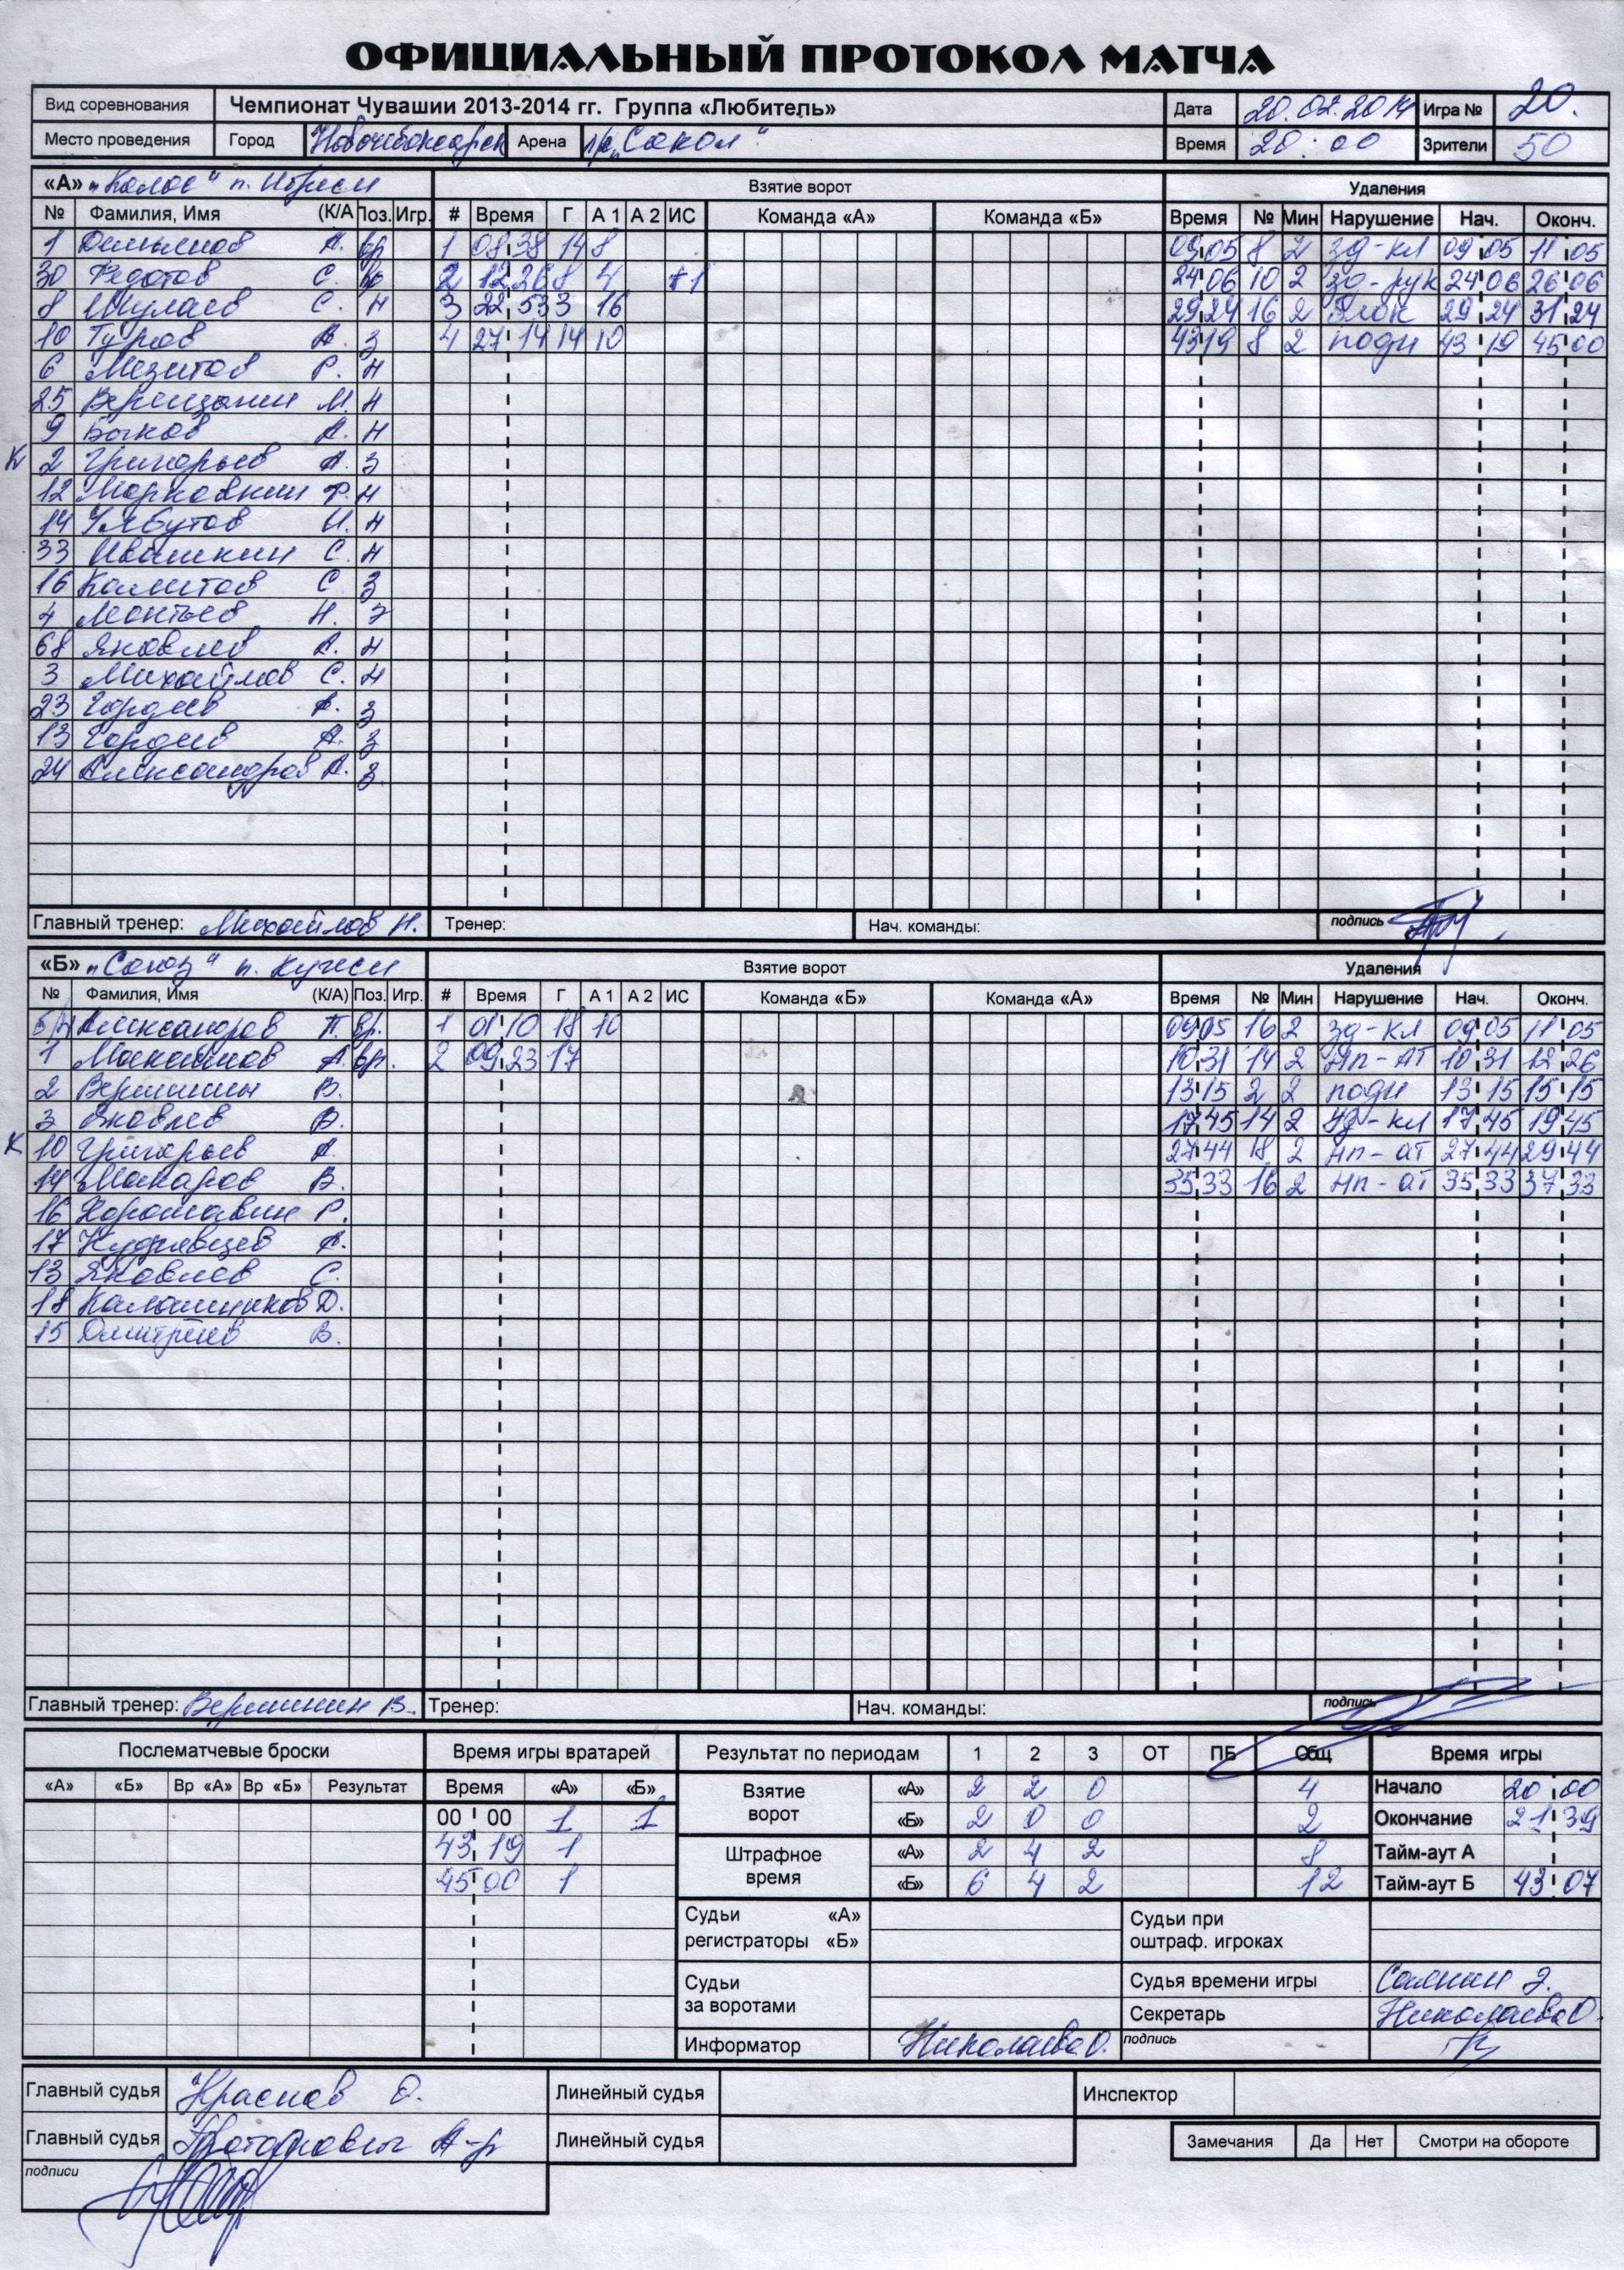 ОФИЦИАЛЬНЫЙ ПРОТОКОЛ МАТЧА
Вид соревнования Чемпионат Чувашии 2013-2014 гг. Группа «Любитель» Дата 20.02.2014 Игра № 20.
Место проведения Город Новочебоксарск Арена "Сокол" Время 20:00 Зрители 50
«А» "Колос" п. Ибреси Взятие ворот Удаления
№ Фамилия, Имя (К/А Поз. Игр. # Время Г А 1 А 2 ИС Команда «А» Команда «Б» Время № Мин Нарушение Нач. Оконч.
1 Демьянов А. вр 1 08 38 14 8 09 05 8 2 зд-кл 09 05 11 05
30 Федотов С. вр 2 12 26 8 4 +1 24 06 10 2 зд-рук 24 06 26 06
8 Шулаев С. н 3 22 53 3 16 29 24 16 2 блок 29 24 31 24
10 Туров А. з 4 27 14 14 10 43 19 8 2 подн 43 19 45 00
6 Мезитов Р. н
25 Верещагин М. н
9 Быков А. н
К 2 Григорьев А. з
12 Морковкин Р. н
14 Улбутов И. н
33 Ивашкин С. н
16 Камитов С. з
4 Леонтьев Н. з
68 Яковлев А. н
3 Михайлов С. н
23 Гордеев А. з
13 Гордеев А. з
24 Александров А. з
Главный тренер: Михайлов Н. Тренер: Нач. команды: подпись
«Б» "Союз" п. Кугеси Взятие ворот Удаления
№ Фамилия, Имя (К/А) Поз. Игр. # Время Г А 1 А 2 ИС Команда «Б» Команда «А» Время № Мин Нарушение Нач. Оконч.
Александров П. вр. 1 01 10 18 10 09 05 16 2 зд-кл 09 05 11 05
1 Макаймов А. вр. 2 09 23 17 10 31 14 2 нп-ат 10 31 12 26
2 Вершинин В. 13 15 2 2 подн 13 15 15 15
3 Яковлев В. 17 45 14 2 уд-кл 17 45 19 45
К 10 Григорьев А. 27 44 18 2 нп-ат 27 44 29 44
14 Макаров В. 35 33 16 2 нп-ат 35 33 37 33
16 Хорошавин Р.
17 Кудрявцев А.
13 Яковлев С.
18 Калашников Д.
15 Дмитриев В.
Главный тренер: Вершинин В. Тренер: Нач. команды: подпись
Послематчевые броски Время игры вратарей Результат по периодам 1 2 3 ОТ ПБ Общ Время игры
«А» «Б» Вр «А» Вр «Б» Результат Время «А» «Б» Взятие ворот «А» 2 2 0 4 Начало 20 00
00 00 1 1 «Б» 2 0 0 2 Окончание 21 39
43 19 1 Штрафное время «А» 2 4 2 8 Тайм-аут А
45 00 1 «Б» 6 4 2 12 Тайм-аут Б 43 07
Судьи «А» Судьи при
регистраторы «Б» оштраф. игроках
Судьи Судья времени игры Саянин Э.
за воротами Секретарь Николаева О.
Информатор Николаева О. подпись
Главный судья Краснов О. Линейный судья Инспектор
Главный судья А-р Линейный судья Замечания Да Нет Смотри на обороте
подписи